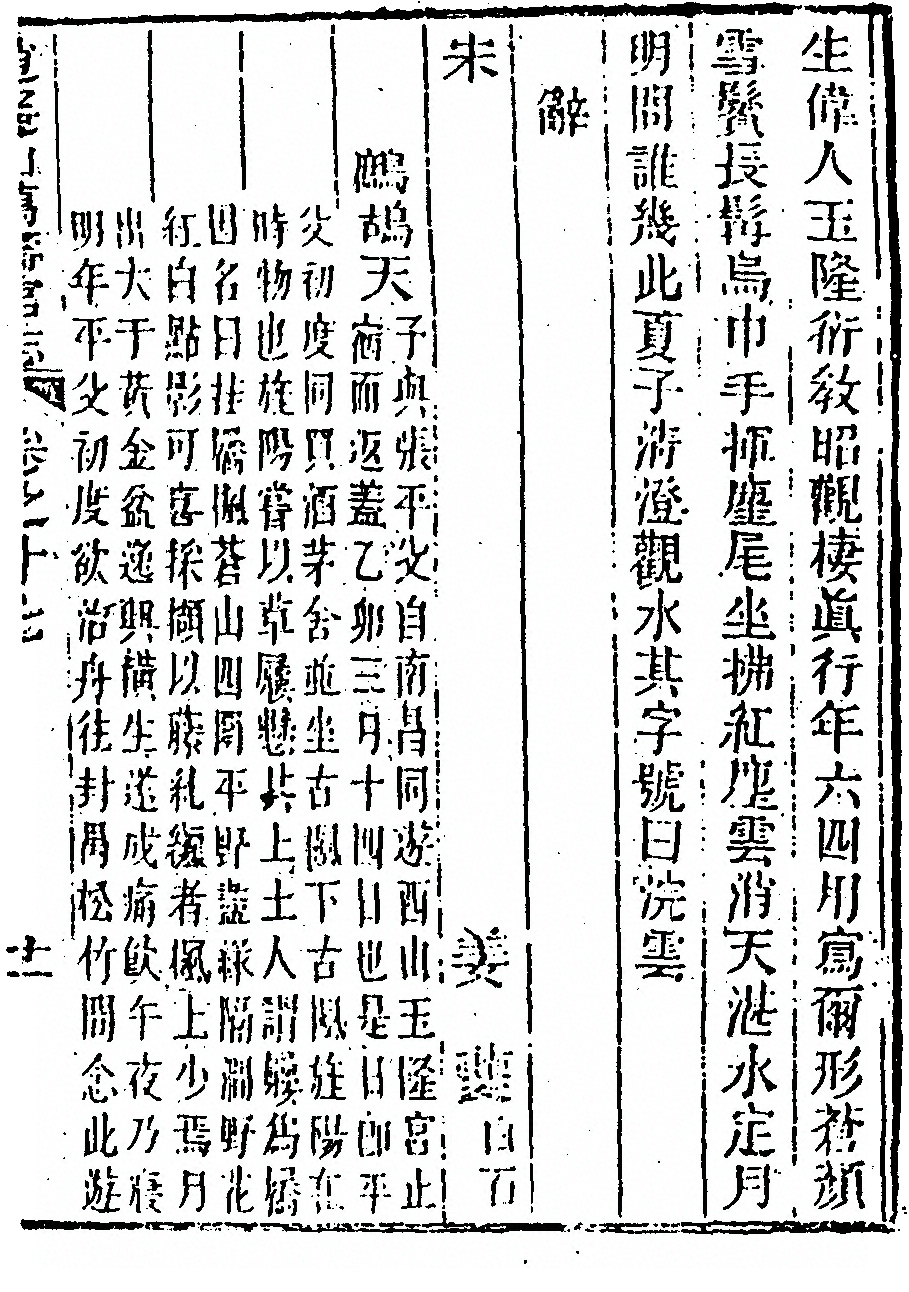 生偉人玉隆衍教昭觀棲眞行年六四用寫爾形蒼顏
雪鬢長髯烏巾手揮麈尾坐拂紅塵雲消天湛水定月
明問誰幾此夏子淸澄觀水其字號曰浣雲
辭
宋 姜夔白石
鷓鴣天
予與張平父自南昌同遊西山玉隆宮止
宿而返蓋乙卯三月十四日也是日卽平
父初度同買酒茅舍並坐古楓下古楓旌陽在
時物也旌陽嘗以草屨懸其上土人謂屨爲屩
因名曰挂屩楓蒼山四圍平野盡綠隔澗野花
紅白點影可喜採擷以藤糺纏者楓上少焉月
出大于黃金盆逸興橫生遂成痛飮午夜乃寢
明年平父初度欲治舟往封禺松竹間念此遊
逍遙山萬壽宮志 卷之十七 十一